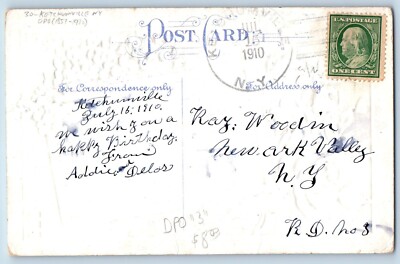 30-KETCHUMVILLE NY
POST CARD
JUL
1910
N.Y.
U.S. POSTAGE
ONE CENT
For Correspondence only
For Address only
Ketchumville
July 15, 1910.
we wish you a
happy Birthday.
From
Addie & Delos
Ray. Woodin
Newark Valley
N Y
R.D. no 3
DPO